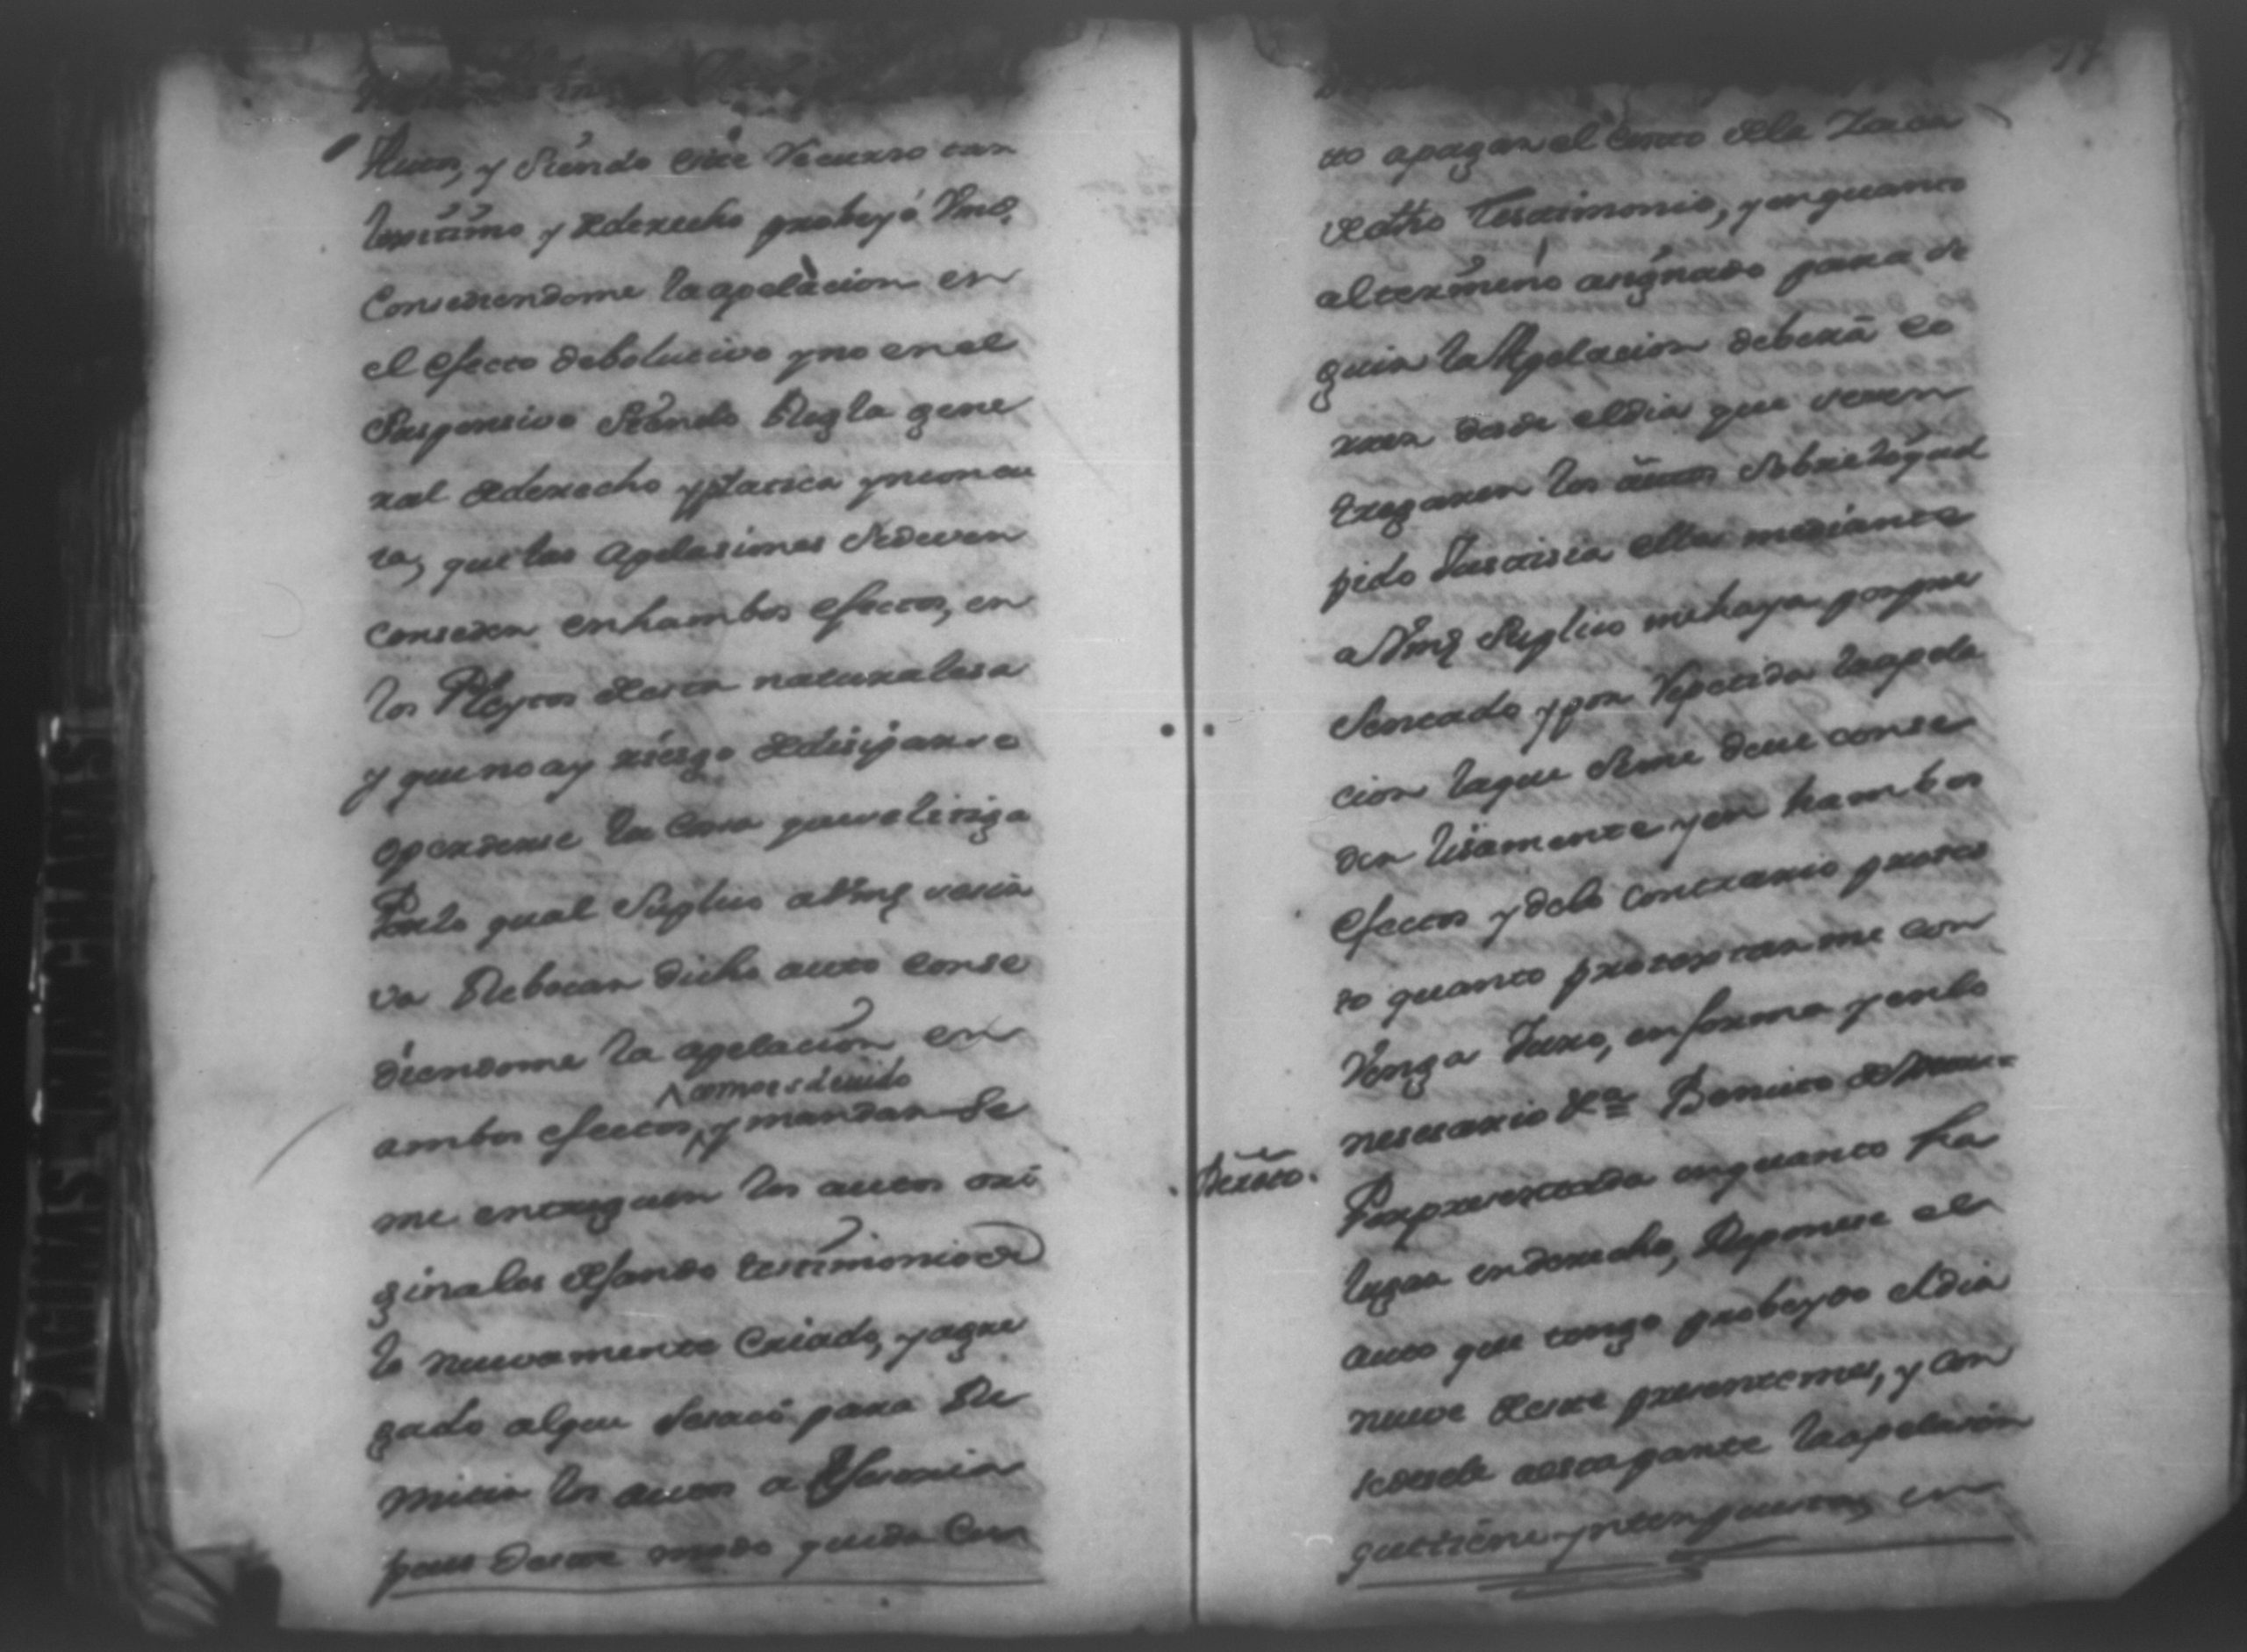 Autos, y siendo este Recurso tan
lexitimo y de derecho probeyó Vmd.
Consediendome la apelacion en
el efecto debolutivo y no en el
Suspensivo siendo Regla gene
ral de derecho y platica
ra, que las apelasiones se deven
conseder en hambos efectos, en
los Pleytos de esta naturalesa
y que no ay riesgo de disiparse
o perderse la Cosa que se litiga
Por lo qual Suplico a Vmd se sir
va Rebocar dicho auto conse
diendome la apelacion en
como es devido
ambos efectos, y mandar se
me entreguen los autos ori
ginales dejando testimonio de
lo nuevamente Criado, y agre
gado al que se sacó para Re
mitir los autos a
pues de este modo queda
to a pagar el Costo de la
de dho Testimonio, y en quanto
al termino asignado para se
guir la Apelacion deberá co
rrer desde el dia que se me en
tregaren los autos sobre lo qual
pido Justisia ella mediante
a Vmd Suplico me haya por pre
sentado y por Repetida la apela
cion la que se me deve conse
der lisamente y en hambos
efectos y de lo contrario protes
to quanto protestarme con
venga Juro, en forma y en lo
nesesario &a Benito de
Decreto.
Por presentada en quanto ha
lugar en derecho, Reponese el
auto que tengo probeydo el dia
nueve de este presente mes, y con
sedesele a esta parte la apelasion
que tiene ynterpuesta, en